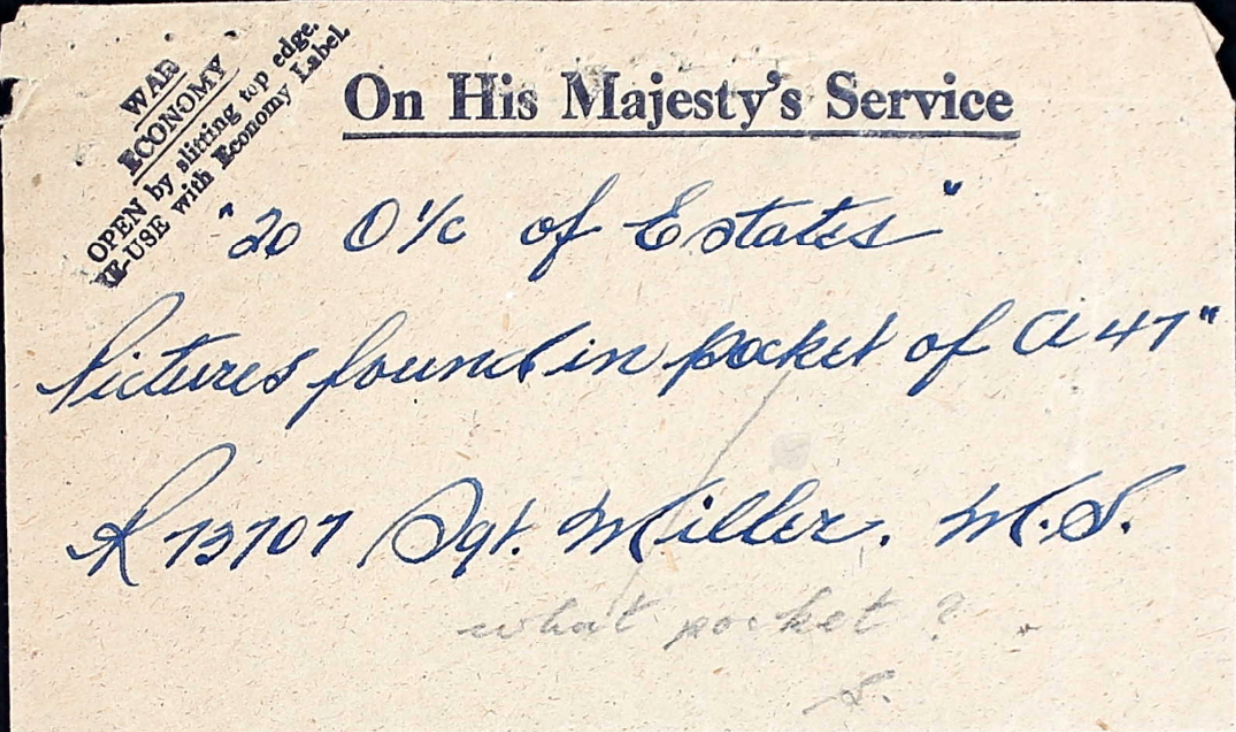 WAR
ECONOMY
OPEN by slitting top edge.
RE-USE with Economy Label.
On His Majesty's Service
"20 O i/c of Estates"
Pictures found in pocket of A 47"
R 73707 Sgt. Miller. M.S.
what pocket ?
S.